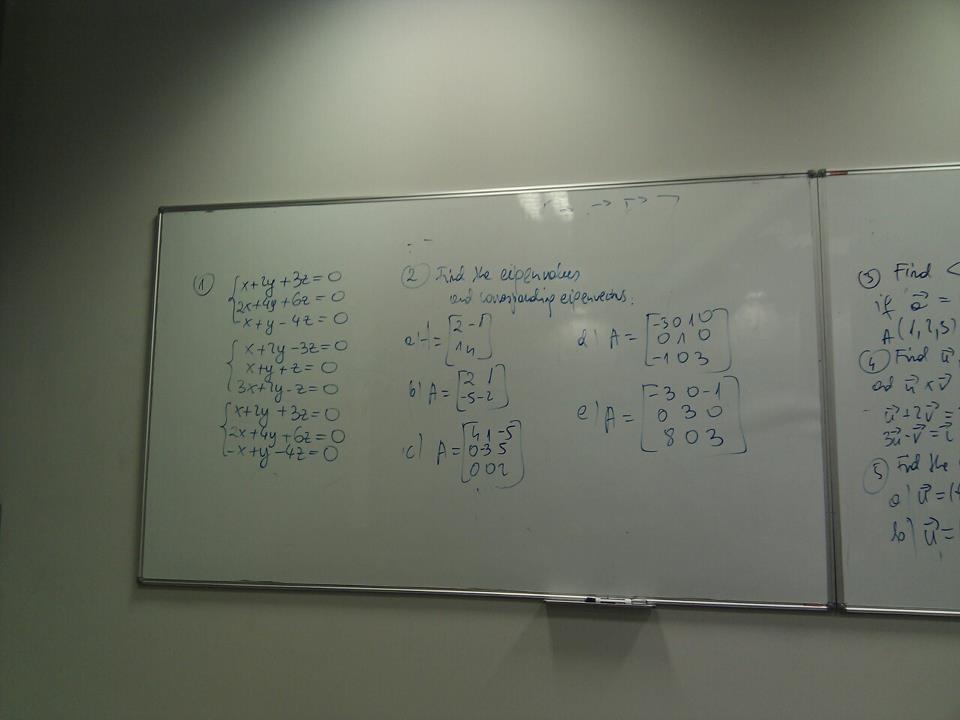 1
x+2y+3z=0
2x+4y+6z=0
-x+y-4z=0
x+2y-3z=0
x+y+z=0
3x+2y-z=0
x+2y+3z=0
2x+4y+6z=0
-x+y-4z=0
2 Find the eigenvalues
and corresponding eigenvectors.
a) A = [2 -1
1 4]
b) A = [2 1
-5 -2]
c) A = [4 1 -5
0 -3 5
0 0 2]
d) A = [-3 0 10
0 1 0
-1 0 3]
e) A = [-3 0 -1
0 3 0
8 0 3]
3 Find
if a⃗ =
A(1,2,3)
4 Find u⃗
ad u⃗ x v⃗
u⃗+2v⃗=
3u⃗-v⃗=
5 Find the
a) u⃗=(
b) u⃗=